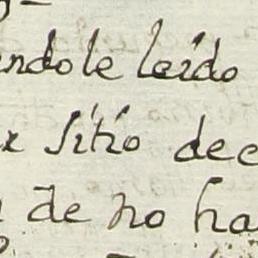 ndole leido
sitio de
de no ha